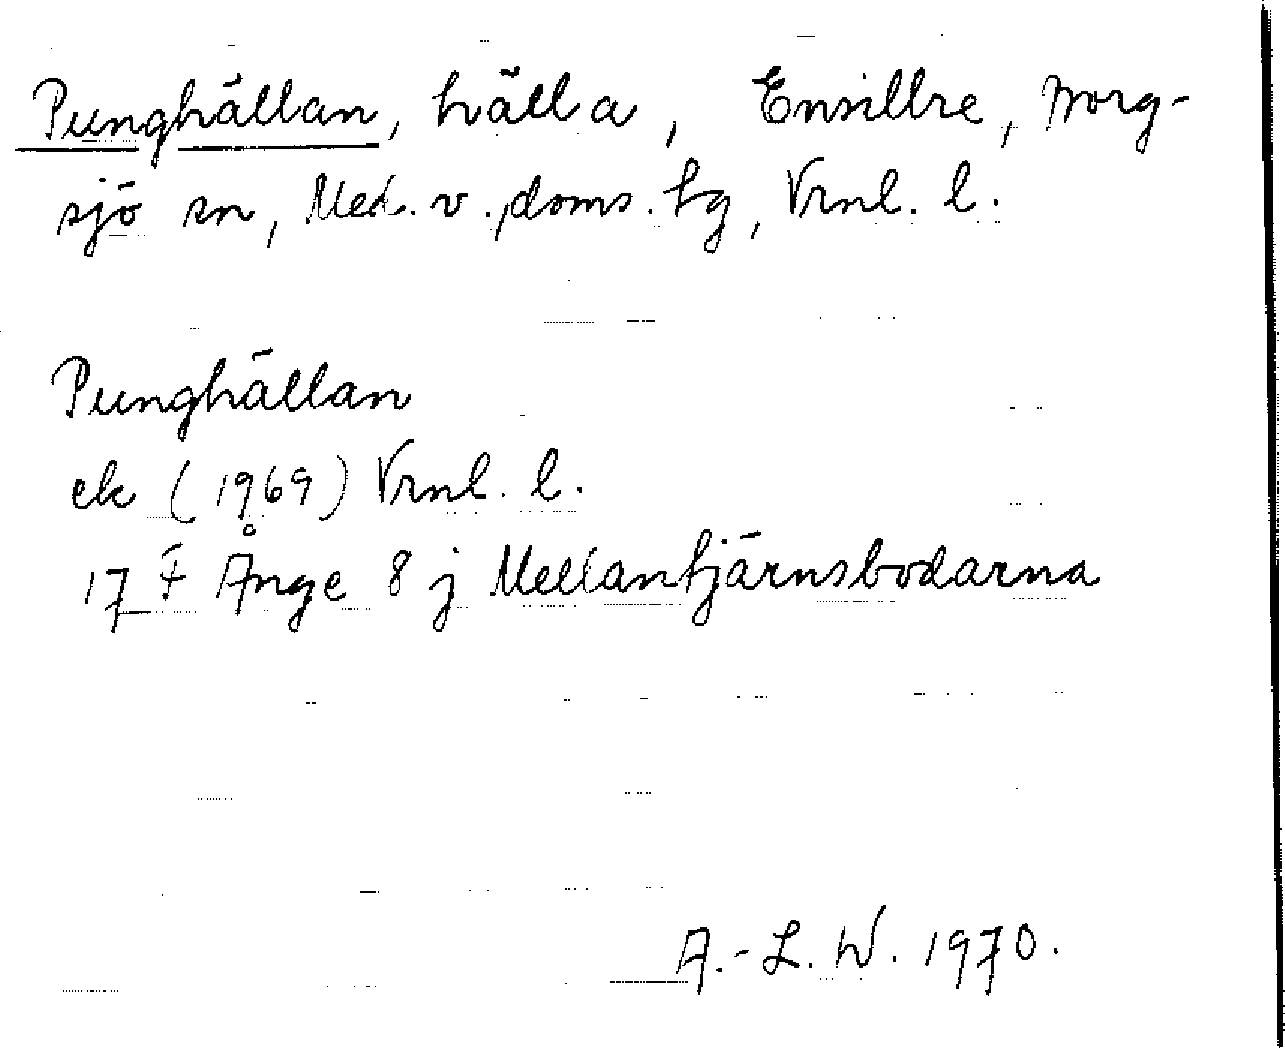 Punghällan, häll a, Ensillre, Borg-
sjö sn, Med. v. doms. tg, Vrnl. l.
Punghällan
ek (1969) Vrnl. l.
17 F Ånge 8 j Mellantjärnsbodarna
A.-L. W. 1970.